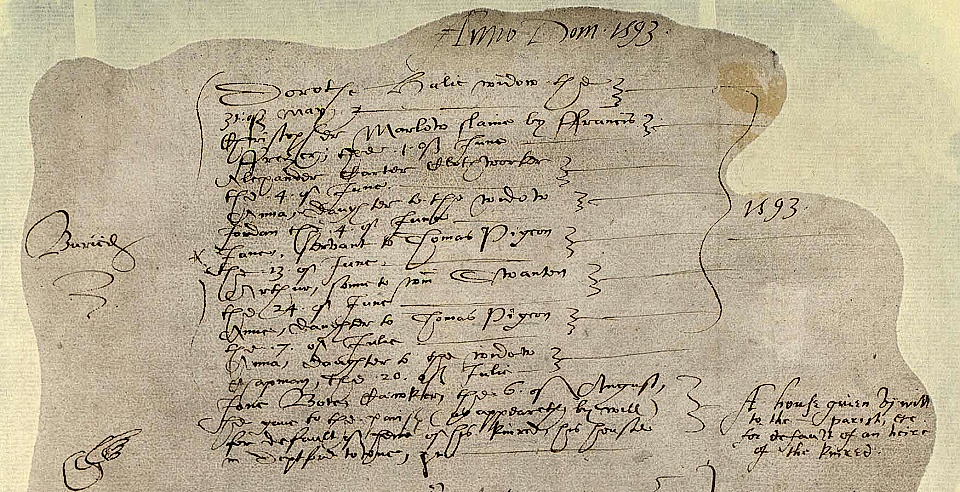 Anno Dom. 1593
Buried
Dorothe Bulie widow the
31 of May
Christopher Marlow slaine by ffrancis
Frezer; the 1 of June
Alexander Carter Clothworker
the 4 of June
Anna, daughter to the widow
Jordan the 4 of June
James, servant to Thomas Pigeon
the 13 of June
Arthur, sonne to Wm Swanton
the 24 of June
Annes, daughter to Thomas Pigeon
the 7. of Julie
Anna, daughter to the widow
Chapman, the 20. of Julie
Jone the 6 of August,
he gave to the parish (as appeareth by will)
for default of heire of his kinred, his house
in Deptford towne,
1593
A house given by will
to the parish, etc
for default of an heire
of the kinred.